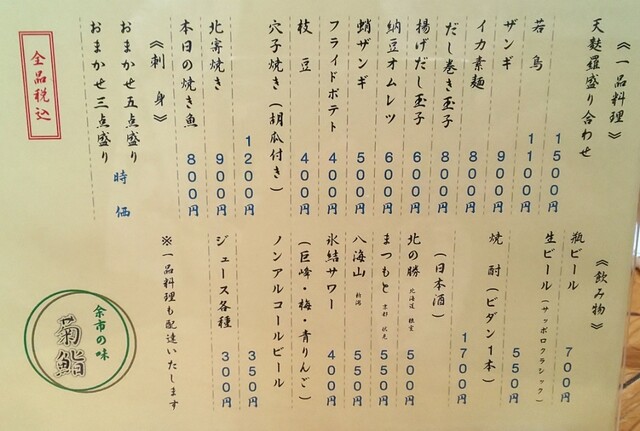 《一品料理》
天麩羅盛り合わせ
1500円
若鳥 1100円
ザンギ 900円
イカ素麺 900円
だし巻き玉子 800円
揚げだし玉子 600円
納豆オムレツ 600円
蛸ザンギ 500円
フライドポテト 400円
枝豆 400円
穴子焼き(胡瓜付き)
1200円
北寄焼き 900円
本日の焼き魚 800円
《刺身》
おまかせ五点盛り
おまかせ三点盛り
時価
全品税込
《飲み物》
瓶ビール 700円
生ビール(サッポロクラシック)
550円
焼酎(ビダン1本)
1700円
(日本酒)
北の勝 北海道 根室 500円
まつもと 京都 伏見 550円
八海山 新潟 550円
氷結サワー 400円
(巨峰・梅・青りんご)
ノンアルコールビール
350円
ジュース各種 300円
※一品料理も配達いたします
余市の味
菊鮨